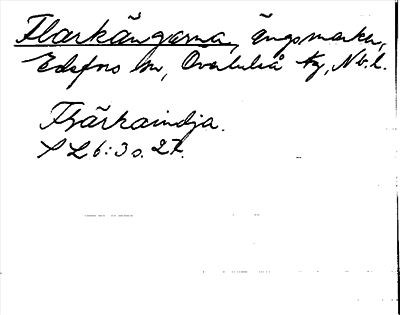 Flarkängarna, ängsmarker,
Edefors sn, Överluleå tg, Nb.l.
Flärkaindja.
SL 6:3 s. 27.